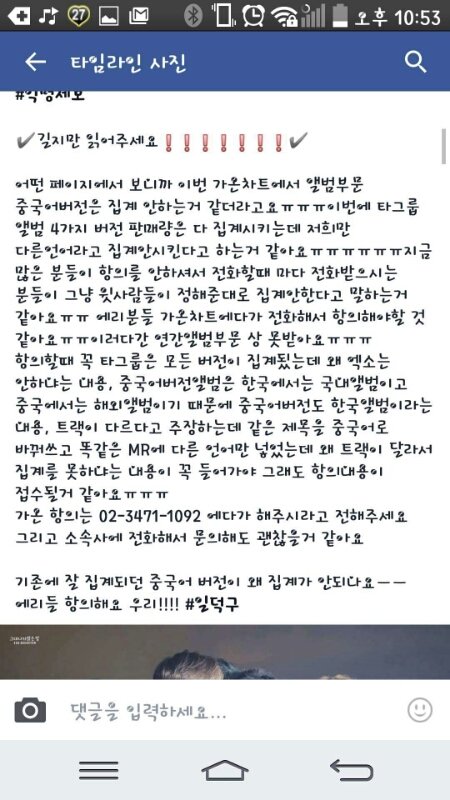 27 오후 10:53
타임라인 사진
#익명제보
✔길지만 읽어주세요❗❗❗❗❗❗❗✔
어떤 페이지에서 보니까 이번 가온차트에서 앨범부문
중국어버전은 집계 안하는거 같더라고요ㅠㅠㅠㅠ이번에 타그룹
앨범 4가지 버전 판매량은 다 집계시키는데 저희만
다른언어라고 집계안시킨다고 하는거 같아요ㅠㅠㅠㅠㅠㅠ지금
많은 분들이 항의를 안하셔서 전화할때 마다 전화받으시는
분들이 그냥 윗사람들이 정해준대로 집계안한다고 말하는거
같아요ㅠㅠ 에리분들 가온차트에다가 전화해서 항의해야할 것
같아요ㅠㅠ이러다간 연간앨범부문 상 못받아요ㅠㅠㅠ
항의할때 꼭 타그룹은 모든 버전이 집계됬는데 왜 엑소는
안하냐는 내용, 중국어버전앨범은 한국에서는 국내앨범이고
중국에서는 해외앨범이기 때문에 중국어버전도 한국앨범이라는
내용, 트랙이 다르다고 주장하는데 같은 제목을 중국어로
바꿔쓰고 똑같은 MR에 다른 언어만 넣었는데 왜 트랙이 달라서
집계를 못하냐는 내용이 꼭 들어가야 그래도 항의내용이
접수될거 같아요ㅠㅠㅠ
가온 항의는 02-3471-1092 에다가 해주시라고 전해주세요
그리고 소속사에 전화해서 문의해도 괜찮을거 같아요
기존에 잘 집계되던 중국어 버전이 왜 집계가 안되나요ㅡㅡ
에리들 항의해요 우리!!!! #일덕구
댓글을 입력하세요...